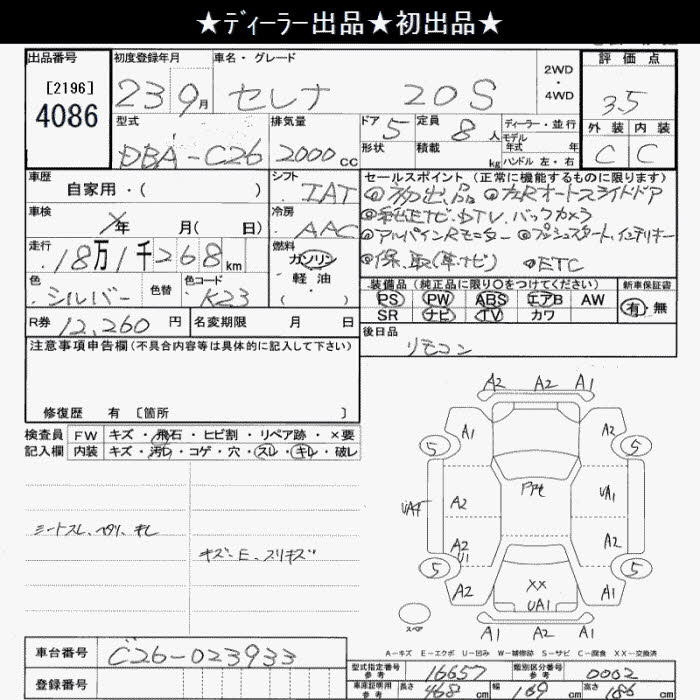 ★ディーラー出品★初出品★
出品番号
[2196]
4086
初度登録年月
23 9月
車名・グレード
セレナ 20S
2WD
・
4WD
評価点
3.5
外装 内装
C C
型式
DBA-C26
排気量
2000cc
ドア 5
定員 8人
ディーラー・並行
モデル
年式 年
形状
積載 kg
ハンドル 左・右
車歴
自家用・( )
シフト
IAT
セールスポイント (正常に機能するものに限ります)
◎初出品 ◎左Rオートスライドドア
◎純正ナビ、DTV、バックカメラ
◎アルパインRモニター ◎プッシュスタート、インテリキー
◎保、取(革ナビ) ◎ETC
車検
年 月( 日)
冷房
AAC
走行
18万1千268km
燃料
ガソリン
・
軽油
色
シルバー
色替
色コード
K23
( )
装備品 (純正品に限り○をつけてください)
新車保証書
PS PW ABS エアB AW
SR ナビ TV カワ
有・無
R券 12,260円
名変期限 月 日
後日品
リモコン
注意事項申告欄 (不具合内容等は具体的に記入して下さい)
修復歴 有 [箇所 ]
検査員
記入欄
FW キズ・飛石・ヒビ割・リペア跡・×要
内装 キズ・汚レ・コゲ・穴・スレ・キレ・破レ
シートスレ、ヘタリ、キレ
キズ・E、スリキズ
A2 A2 A1
A1 A2
5 5
A2 UA1
A2 U1 A2
5 5
A2 XX A1
UA1
A1 A1 A2
スペア
A-キズ E-エクボ U-凹み W-補修跡 S-サビ C-腐食 XX-交換済
車台番号
C26-023933
登録番号
型式指定番号
参考
16657
類別区分番号
参考
0002
車庫証明用
参考
長さ 468cm 幅 169cm 高さ 186cm